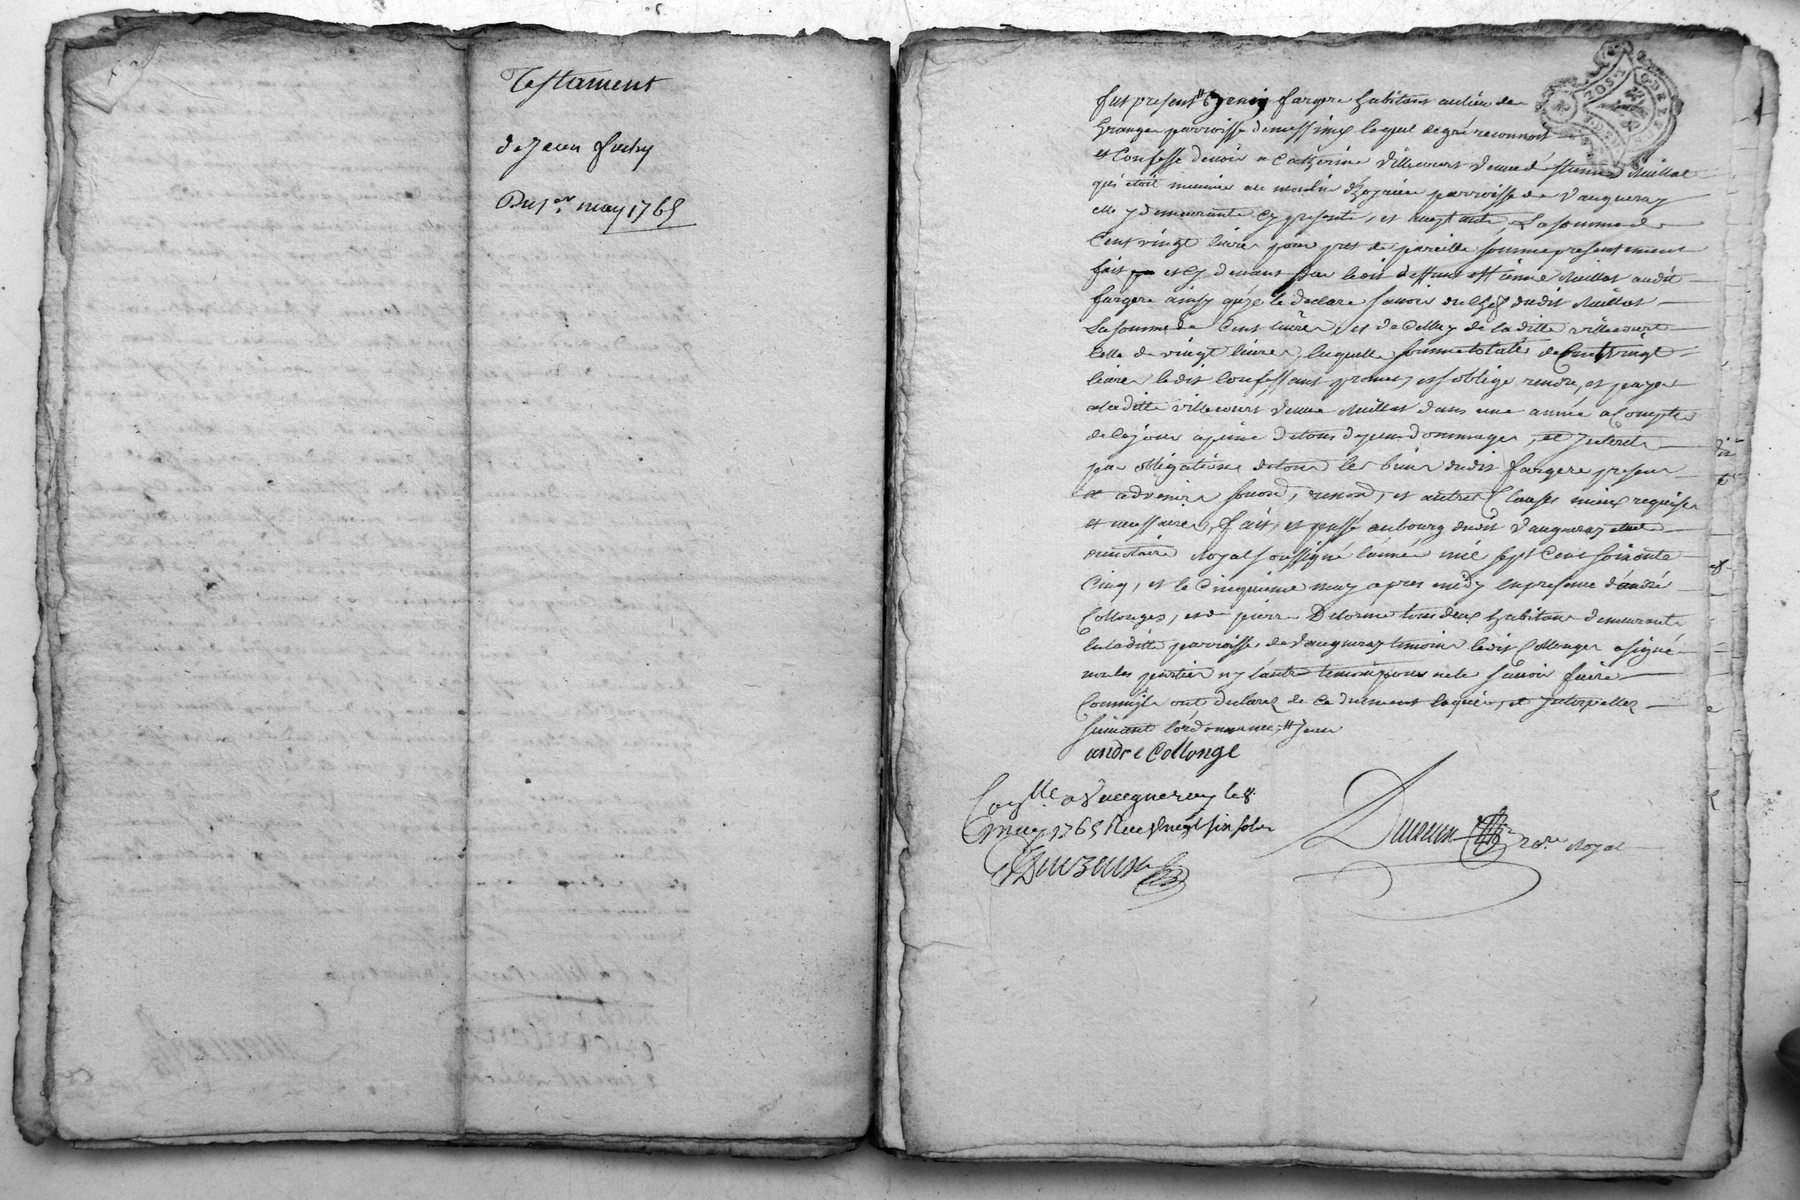 Testament
de Jean
Du 1er may 1765
fut present fargere habitant au lieu de
Grange parroisse de messimy lequel de gré reconnoit
et Confesse devoir a Catherine Villecourt veuve d'Etienne Muillat
qui etoit meunier au moulin parroisse de Vaugneray
elle y demeurante cy presente, et acceptante, La somme de
Cent vingt livres pour pret de pareille somme presentement
fait et cy devant par ledit deffunt ettienne Muillat audit
fargere ainsy qu'il le declare savoir du chef dudit Muillat
La somme de Cent livres, et de Celluy de laditte villecourt
Celle de vingt livres, laquelle somme totalle de Cent vingt
livres ledit Confessant promet, et s'oblige rendre, et payer
a laditte villecourt veuve Muillat dans une année a Compter
de ce jour a peine de tous depens dommages, et Interets
par obligations de tous les biens dudit fargere presens
et advenir, renond, et autres Clauses mieux requises
et necessaires, fait, et passé au bourg dudit Vaugneray
notaire Royal soussigné l'année mil sept Cent soixante
Cinq, et le Cinquieme may apres midy en presence d'andré
Collonges, et de pierre Delorme tous deux habitans demeurants
en laditte parroisse de Vaugneray temoins ledit Collonges a signé
non les parties ny l'autre temoin pour ne le savoir faire
Comm'ils ont declaré de ce duement enquis, et Interpellez
suivant l'ordonnance, # Jean
andre Collonge
Conlle a Vaugneray le 8
may 1765 Reçu vingt six sols
Royal